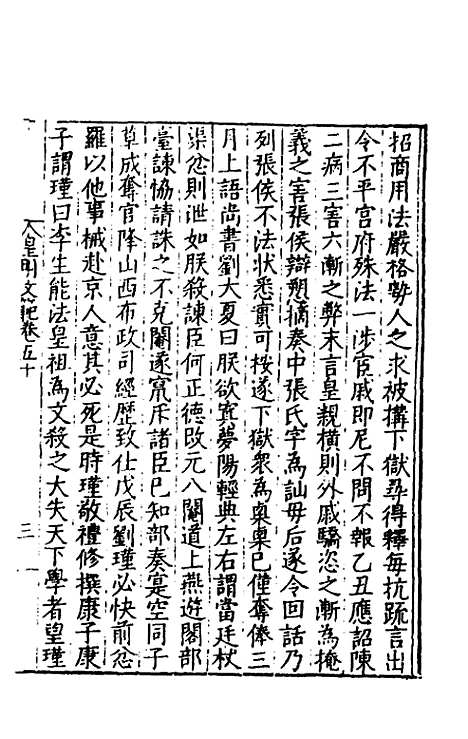 招商用法嚴格勢人之求被搆下獄尋得釋每抗疏言出
令不平宫府殊法一涉宦戚即尼不問不報乙丑應詔陳
二病三害六漸之弊末言皇親橫則外戚驕恣之漸為掩
義之害張侯辯愬摘奏中張氏字為訕毋后遂令回話乃
列張侯不法狀悉實可按遂下獄衆為臬臬已僅奪俸三
月上語尚書劉大夏曰朕欲寘夢陽輕典左右謂當廷杖
渠忿則泄如朕殺諫臣何正德改元八閹道上燕遊閣部
臺諫協請誅之不克閹遂竄斥諸臣已知部奏寔空同子
草成奪官降山西布政司經歷致仕戊辰劉瑾必快前忿
羅以他事械赴京人意其必死是時瑾敬禮修撰康子康
子謂瑾曰李生能法皇祖為文殺之大失天下學者望瑾
皇明文範卷五十
三